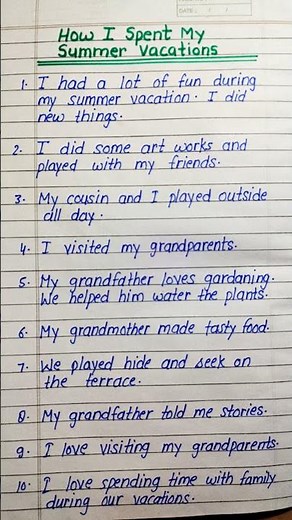 How I Spent My
Summer Vacations
1. I had a lot of fun during
my summer vacation. I did
new things.
2. I did some art works and
played with my friends.
3. My cousin and I played outside
all day.
4. I visited my grandparents.
5. My grandfather loves gardaning.
We helped him water the plants.
6. My grandmother made tasty food.
7. We played hide and seek on
the terrace.
8. My grandfather told me stories.
9. I love visiting my grandparents.
10. I love spending time with family
during our vacations.